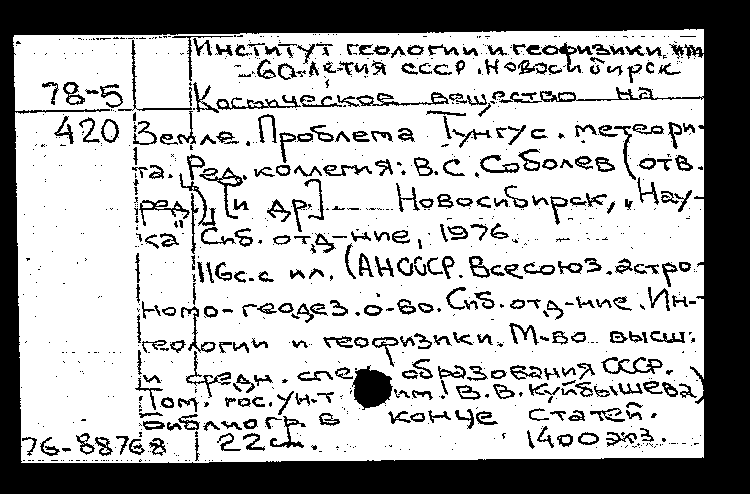 Институт геологии и геофизики им
-60-летия СССР. Новосибирск
78-5 Космическое вещество на
420 Земле. Проблема Тунгус. метеори-
та. Ред. коллегия: В.С. Соболев (отв.
ред.), [и др]. Новосибирск, „Нау-
ка" Сиб. отд-ние, 1976.
116с.с ил. (АН СССР. Всесоюз. астро-
номо-геодез. о-во. Сиб. отд-ние. Ин-т
геологии и геофизики. М-во высш.
и средн. спец образования СССР.
Том. гос. ун-т им. В.В. Куйбышева)
Библиогр. в конце статей.
76-88768 22см. 1400 экз.